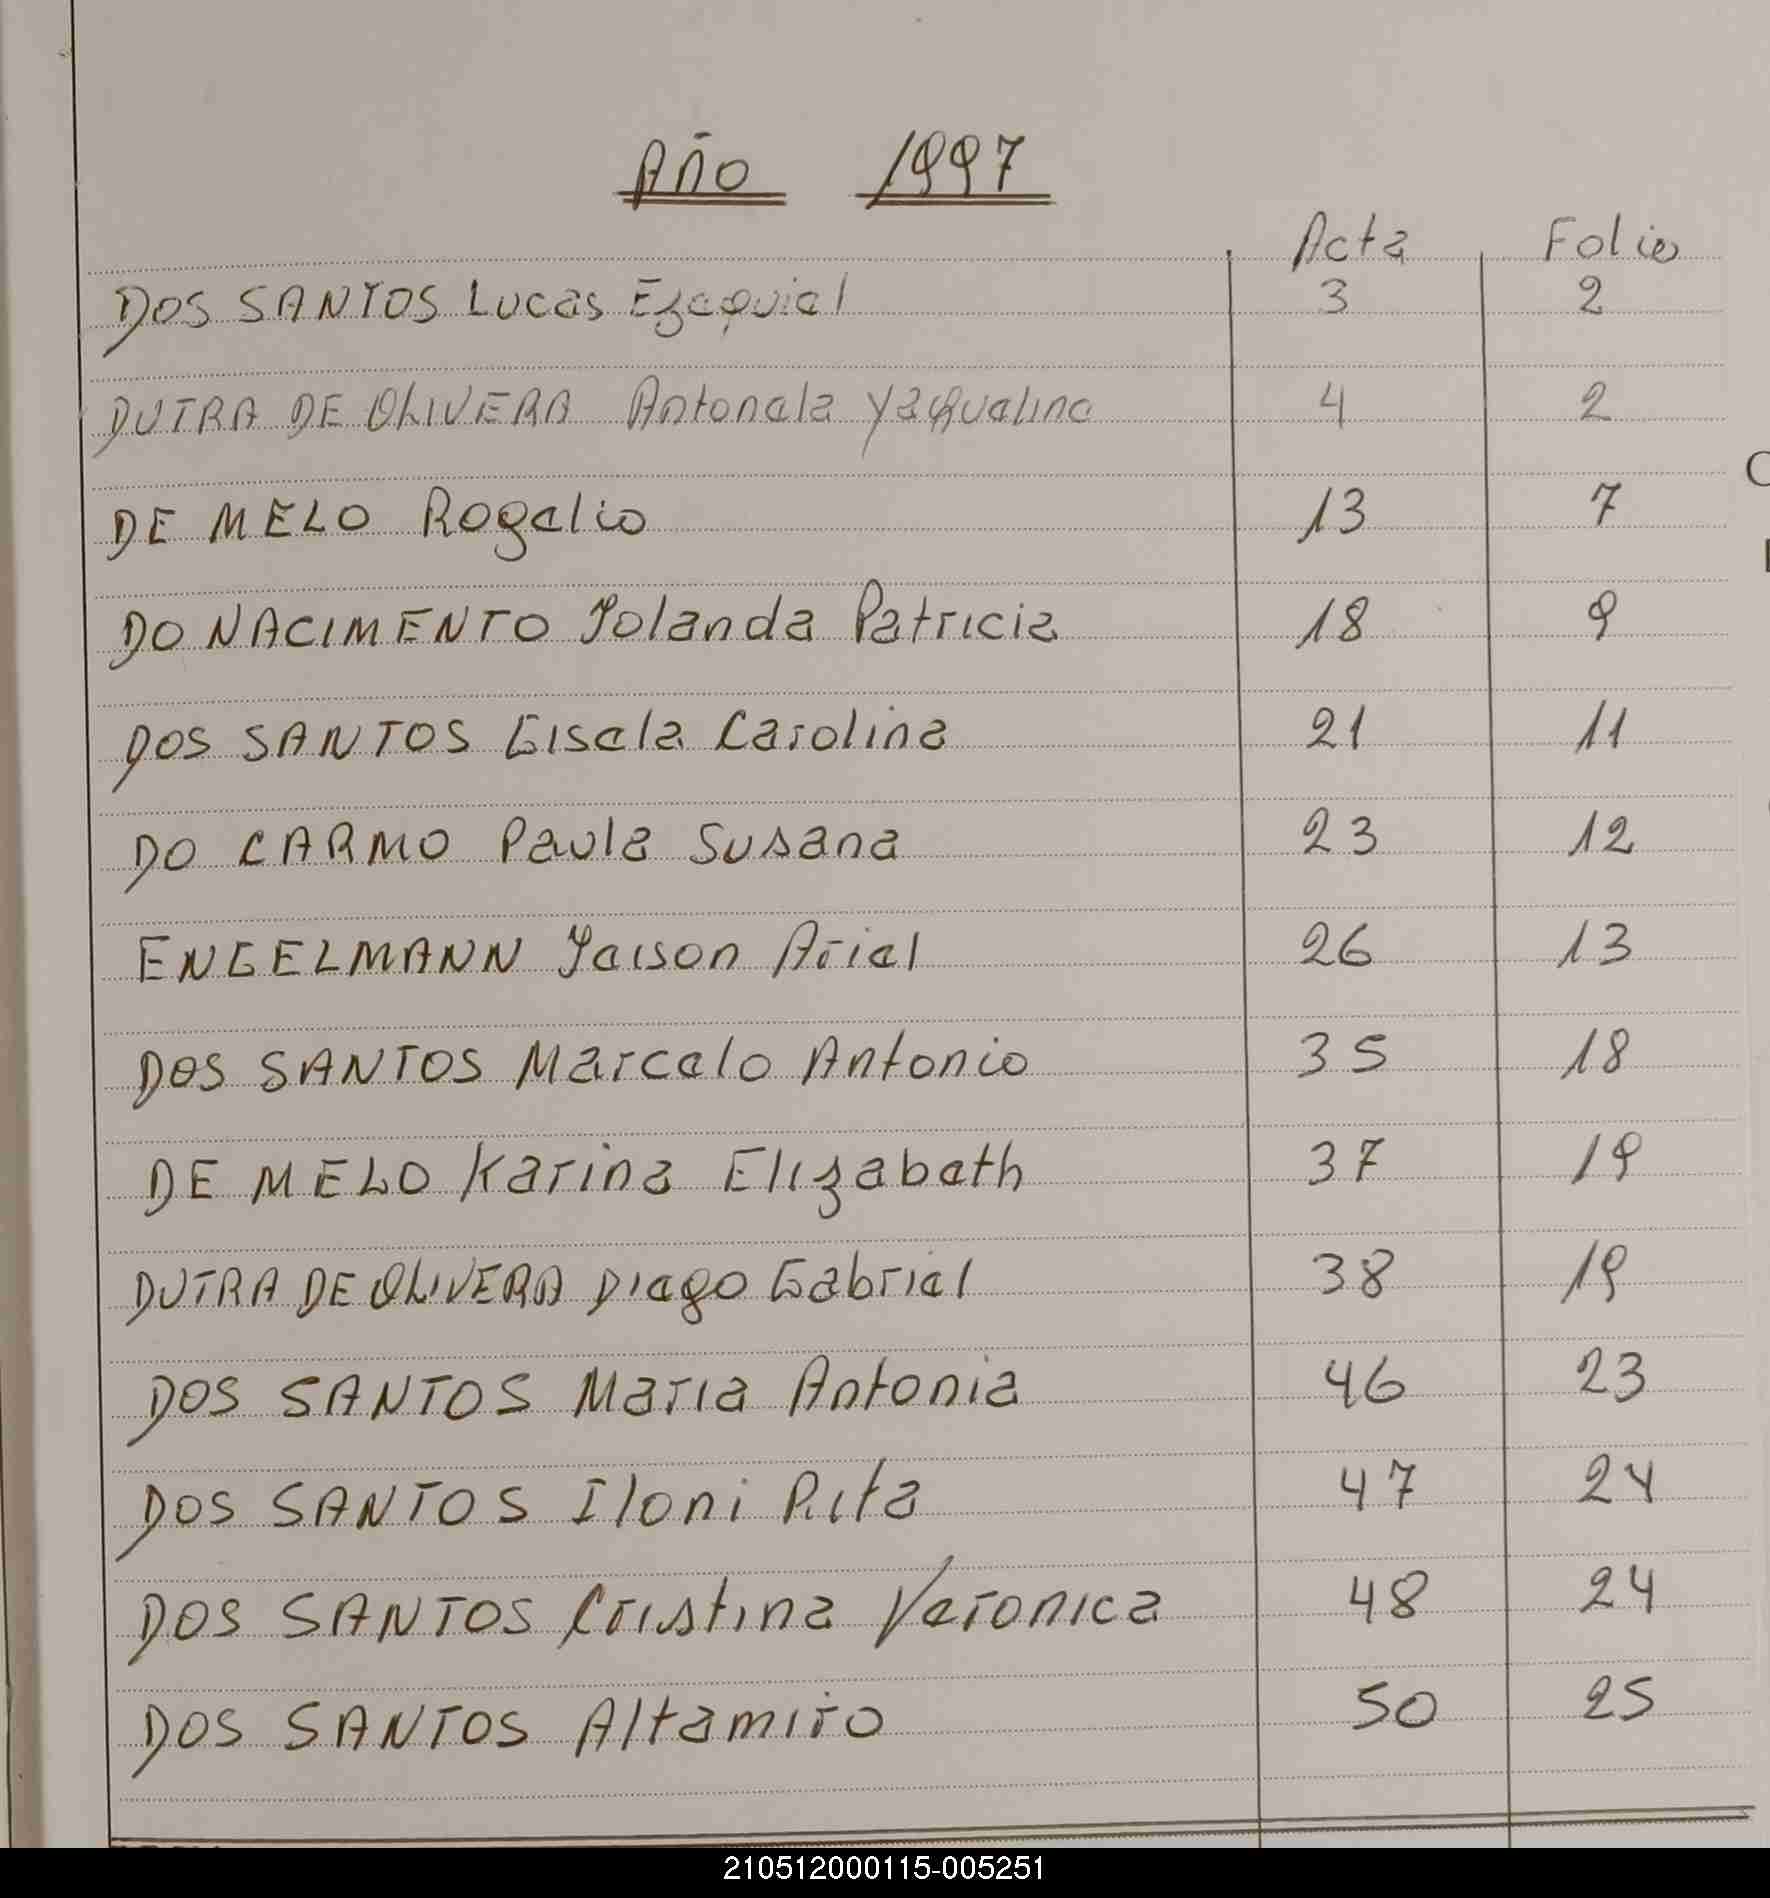 Año 1997
Acta Folio
DOS SANTOS Lucas Ezequiel 3 2
DUTRA DE OLIVERA Antonela Yaquelina 4 2
DE MELO Rogelio 13 7
DO NACIMENTO Yolanda Patricia 18 9
DOS SANTOS Gisela Carolina 21 11
DO CARMO Paula Susana 23 12
ENGELMANN Yeison Ariel 26 13
DOS SANTOS Marcelo Antonio 35 18
DE MELO Karina Elizabeth 37 19
DUTRA DE OLIVERA Diego Gabriel 38 19
DOS SANTOS Maria Antonia 46 23
DOS SANTOS Iloni Rita 47 24
DOS SANTOS Cristina Veronica 48 24
DOS SANTOS Altamiro 50 25
210512000115-005251